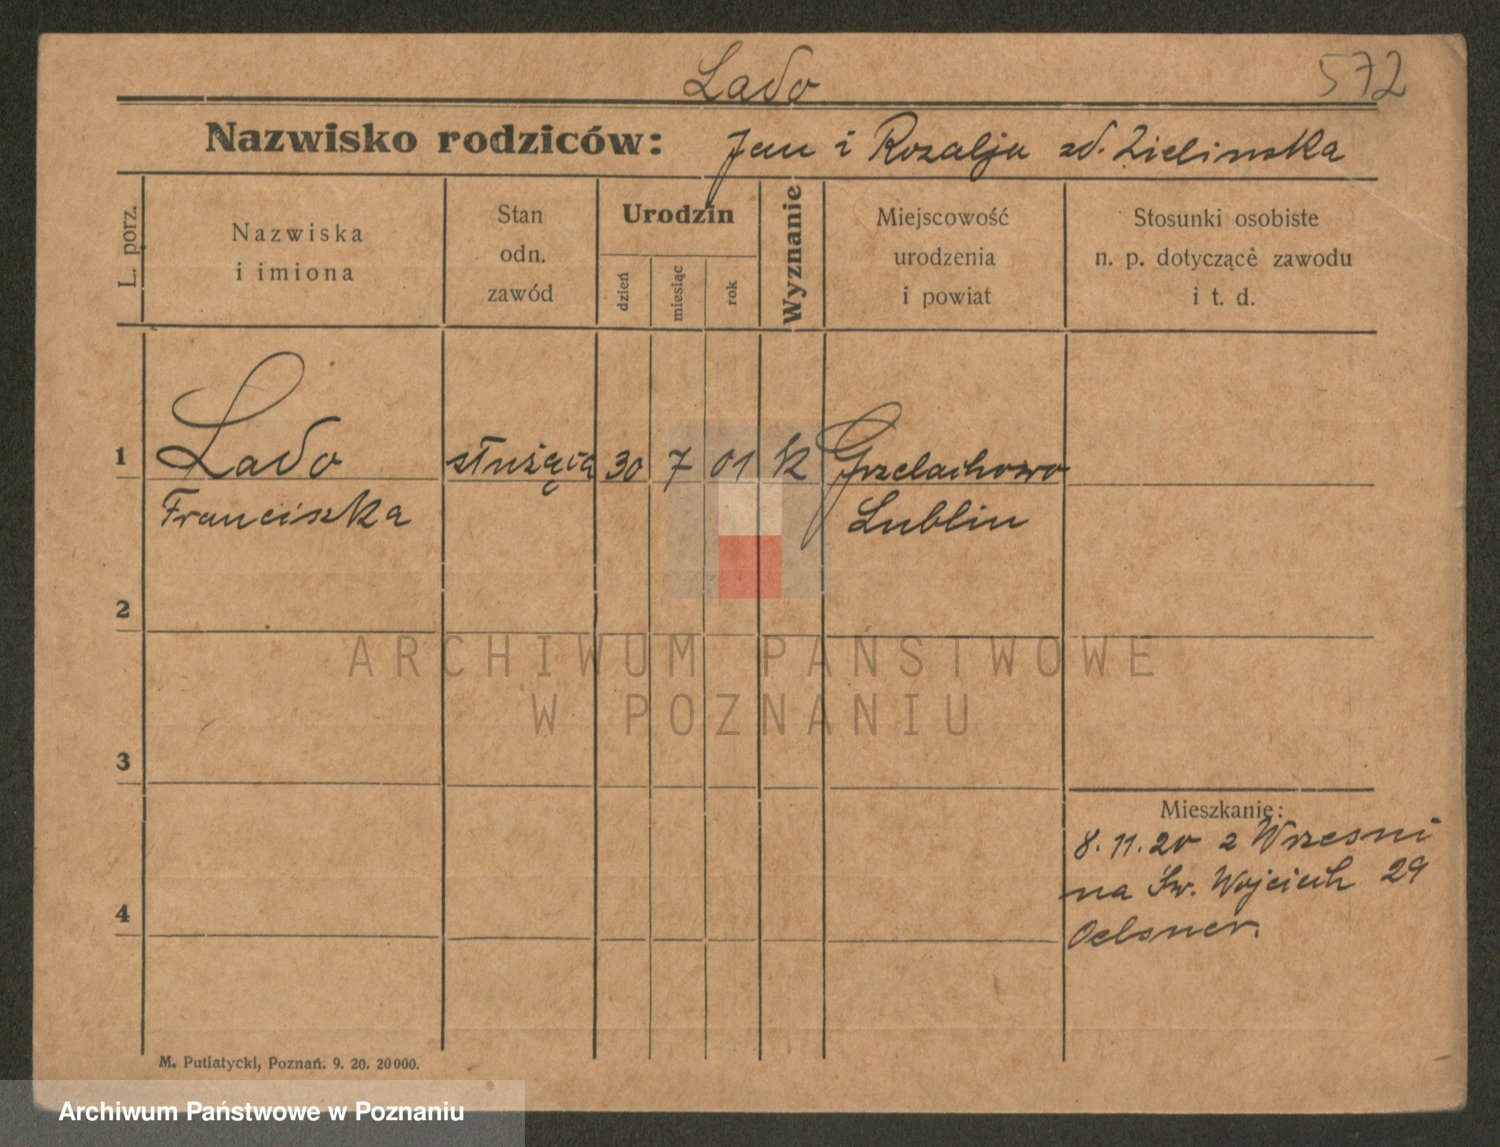 Lado
572
Nazwisko rodziców: Jan i Rozalja zd. Zielinska
L. porz.
Nazwiska
i imiona
Stan
odn.
zawód
Urodzin
dzień
miesiąc
rok
Wyznanie
Miejscowość
urodzenia
i powiat
Stosunki osobiste
n. p. dotyczące zawodu
i t. d.
1 Lado służąca 30 7 01 k Grzelachowo
Franciszka Lublin
2
ARCHIWUM PAŃSTWOWE
W POZNANIU
3
Mieszkanie:
8. 11. 20 z Wrzesni
na Św. Wojciech 29
4
Oelsner.
M. Putiatycki, Poznań. 9. 20. 20000.
Archiwum Państwowe w Poznaniu